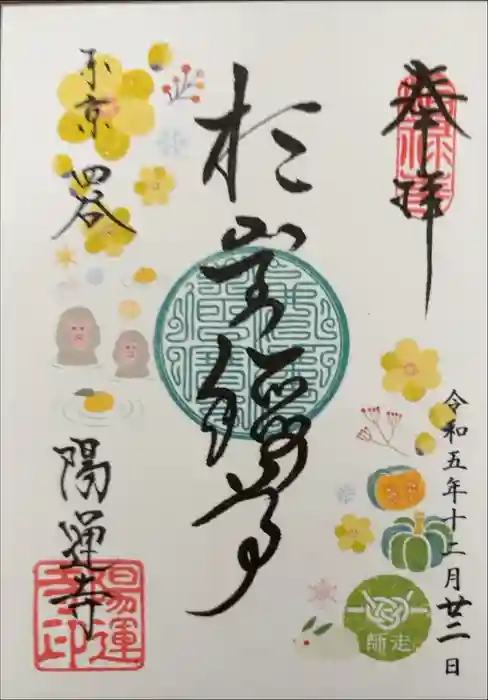 奉拝
令和五年十二月廿二日
師走
於岩
尊
東京
四谷
陽運寺
陽運
寺印